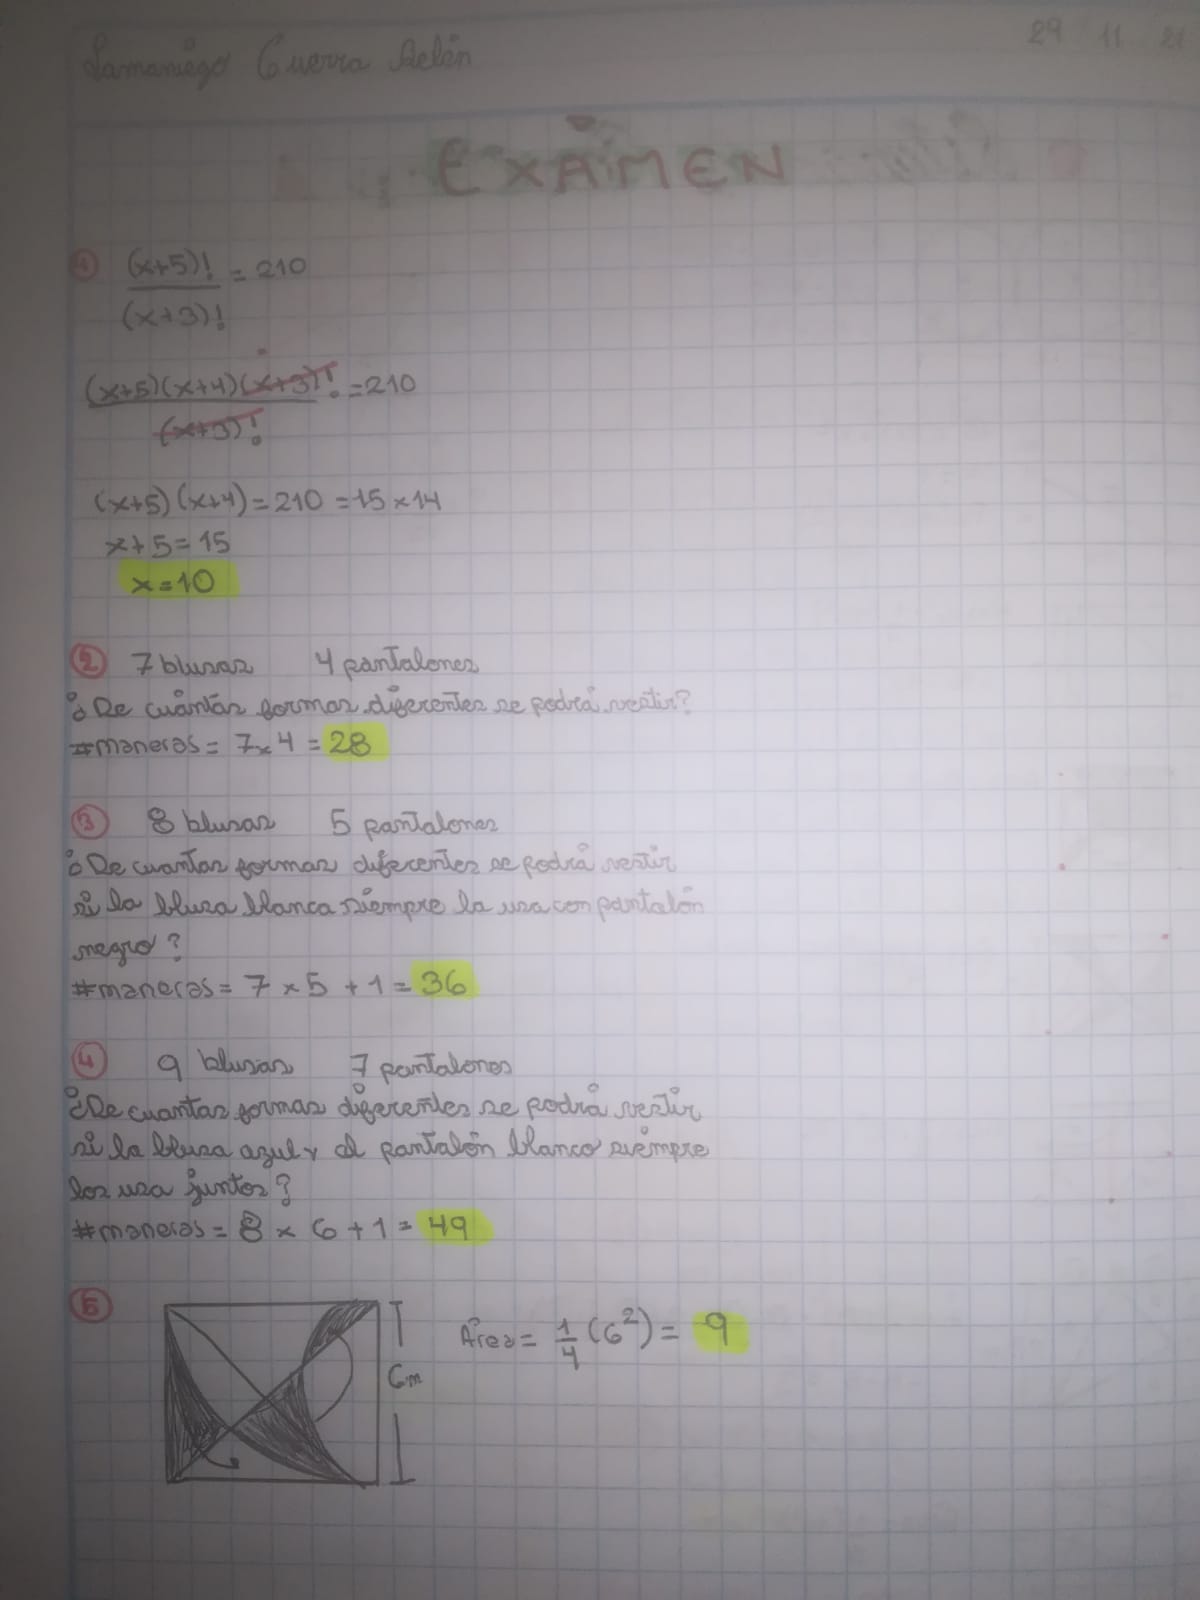 Samaniego Guerra Belén
29 11 21
EXÁMEN
1 (x+5)! = 210
(x+3)!
(x+5)(x+4)(x+3)! = 210
(x+3)!
(x+5)(x+4) = 210 = 15 x 14
x+5 = 15
x = 10
2 7 blusas 4 pantalones
¿De cuántas formas diferentes se podrá vestir?
#maneras = 7 x 4 = 28
3 8 blusas 5 pantalones
¿De cuantas formas diferentes se podrá vestir
si la blusa blanca siempre la usa con pantalón
negro?
#maneras = 7 x 5 + 1 = 36
4 9 blusas 7 pantalones
¿De cuantas formas diferentes se podrá vestir
si la blusa azul y el pantalón blanco siempre
los usa juntos?
#maneras = 8 x 6 + 1 = 49
5 6m Área = 1/4 (6²) = 9